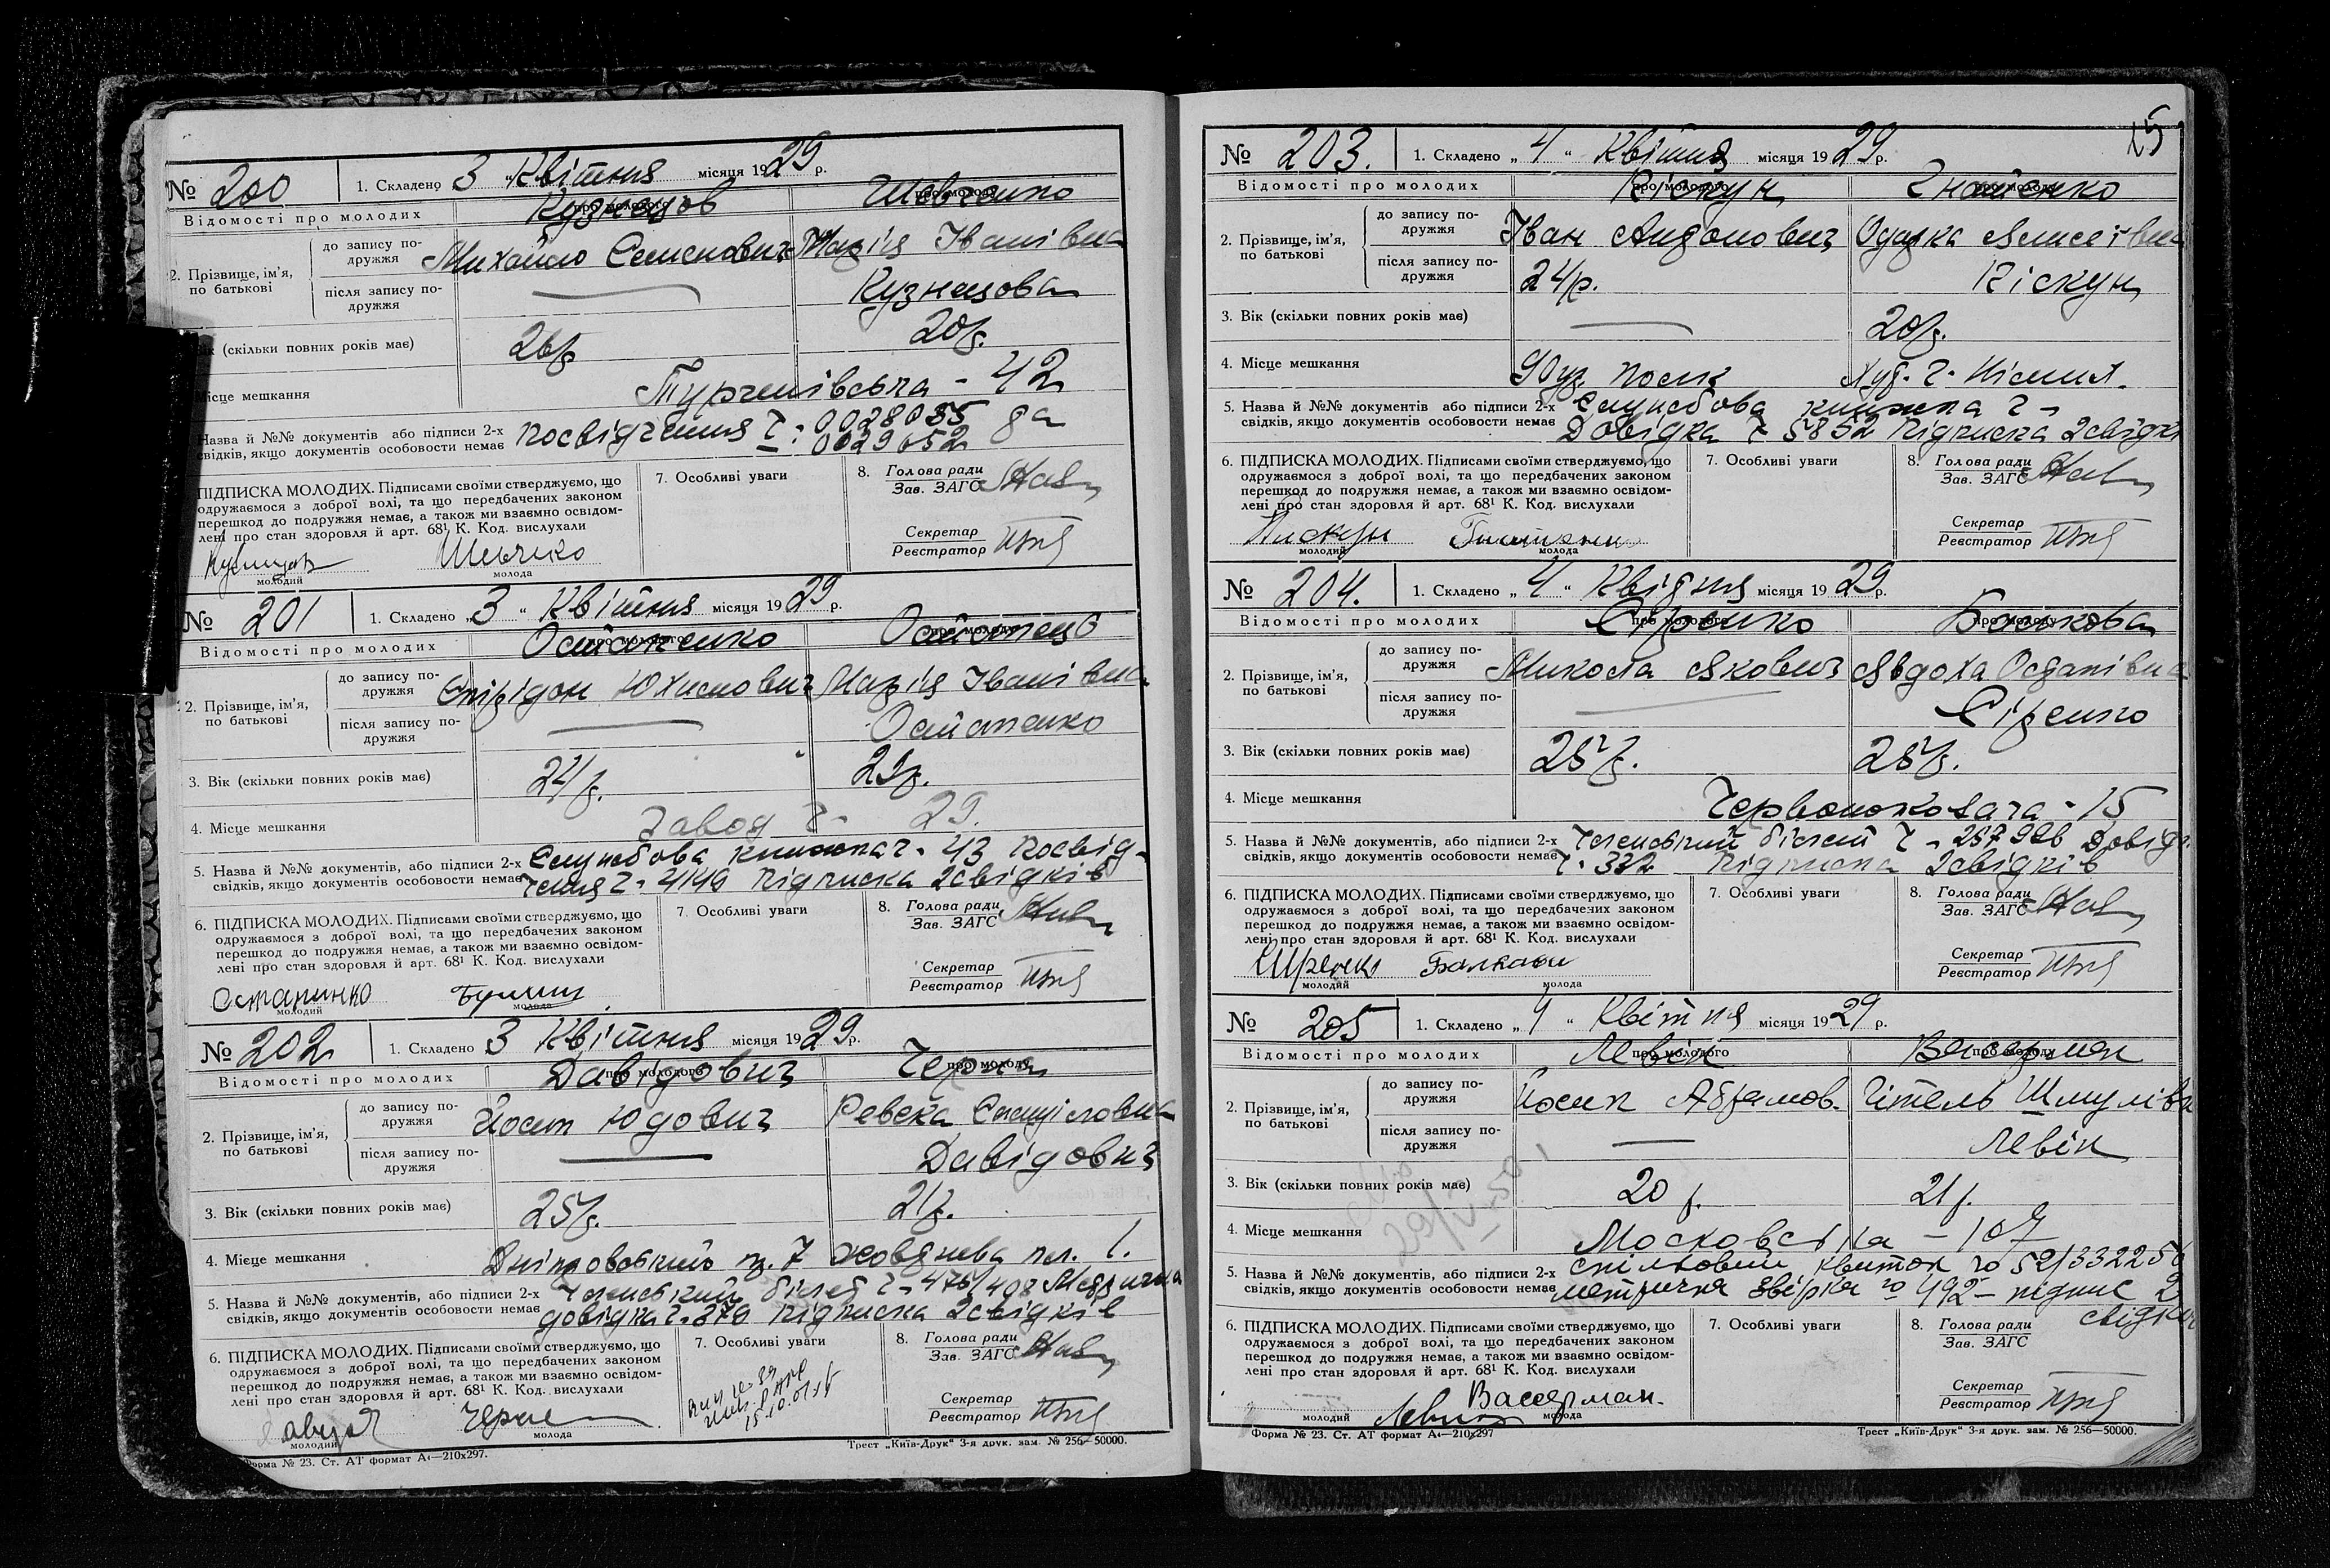 № 200 1. Складено 3 „ Квітня місяця 1929 р.
Відомості про молодих про молодого Кузнецов про молоду Шевченко
2. Прізвище, ім’я, по батькові
до запису подружжя Михайло Семенович Марія Іванівна
після запису подружжя Кузнецова
Вік (скільки повних років має) 26 р. 20 р.
Місце мешкання Тургенівська - 42
Назва й №№ документів або підписи 2-х посвідчення ч: 0028035 8а
свідків, якщо документів особовости немає 0029052
ПІДПИСКА МОЛОДИХ. Підписами своїми стверджуємо, що
одружаємося з доброї волі, та що передбачених законом
перешкод до подружжя немає, а також ми взаємно освідом-
лені про стан здоровля й арт. 68¹ К. Код. вислухали
7. Особливі уваги
8. Голова ради
Зав. ЗАГС
Секретар
Реєстратор
молодий молода
№ 201 1. Складено „3 “ Квітня місяця 1929 р.
Відомості про молодих про молодого Остапенко про молоду
2. Прізвище, ім’я, по батькові
до запису подружжя Спірідон Юхимович Марія Іванівна
після запису подружжя Остапенко
3. Вік (скільки повних років має) 24 р. 23 р.
4. Місце мешкання Завод ч- 29.
5. Назва й №№ документів, або підписи 2-х Службова книжка ч- 43 Посвід-
свідків, якщо документів особовости немає чення ч- 4146 Підписка 2 свідків
6. ПІДПИСКА МОЛОДИХ. Підписами своїми стверджуємо, що
одружаємося з доброї волі, та що передбачених законом
перешкод до подружжя немає, а також ми взаємно освідом-
лені про стан здоровля й арт. 68¹ К. Код. вислухали
7. Особливі уваги
8. Голова ради
Зав. ЗАГС
Секретар
Реєстратор
Остапинко
молодий молода
№ 202 1. Складено 3 Квітня місяця 1929 р.
Відомості про молодих про молодого Давідович про молоду
2. Прізвище, ім’я, по батькові
до запису подружжя Йосип Юдович Ревека
після запису подружжя Давідович
3. Вік (скільки повних років має) 25 р. 21 р.
4. Місце мешкання Дніпровський п. 7 Жовднева пл. 1.
5. Назва й №№ документів, або підписи 2-х Членський білет ч- 476/498 Медрична
свідків, якщо документів особовости немає довідка ч. 370 підписка 2 свідків
6. ПІДПИСКА МОЛОДИХ. Підписами своїми стверджуємо, що
одружаємося з доброї волі, та що передбачених законом
перешкод до подружжя немає, а також ми взаємно освідом-
лені про стан здоровля й арт. 68¹ К. Код. вислухали
7. Особливі уваги
8. Голова ради
Зав. ЗАГС
Секретар
Реєстратор
молодий молода
Форма № 23. Ст. АТ формат А₄—210x297. Трест „Київ-Друк“ 3-я друк. зам. № 256—50000.
№ 203. 1. Складено „ 4 “ Квітня місяця 1929 р.
Відомості про молодих про молодого Піскун про молоду Гнатенко
2. Прізвище, ім’я, по батькові
до запису подружжя Іван Андонович Одарка Алисеівна
після запису подружжя 24 р. Піскун
3. Вік (скільки повних років має) 20 р.
4. Місце мешкання 90 уз. полк
5. Назва й №№ документів або підписи 2-х Службова книжка ч-
свідків, якщо документів особовости немає Довідка ч 5852 Підписка 2 свідкі
6. ПІДПИСКА МОЛОДИХ. Підписами своїми стверджуємо, що
одружаємося з доброї волі, та що передбачених законом
перешкод до подружжя немає, а також ми взаємно освідом-
лені про стан здоровля й арт. 68¹ К. Код. вислухали
7. Особливі уваги
8. Голова ради
Зав. ЗАГС
Секретар
Реєстратор
Пискун
молодий молода
№ 204. 1. Складено „ 4 “ Квідня місяця 1929 р.
Відомості про молодих про молодого Сіренко про молоду
2. Прізвище, ім’я, по батькові
до запису подружжя Микола Якович Явдоха Осдапівна
після запису подружжя Сіренко
3. Вік (скільки повних років має) 25 р. 25 р.
4. Місце мешкання Червонокозача - 15
5. Назва й №№ документів, або підписи 2-х Членський білет ч - 287926 Довід.
свідків, якщо документів особовости немає ч- 332 Підписка 2 свідків
6. ПІДПИСКА МОЛОДИХ. Підписами своїми стверджуємо, що
одружаємося з доброї волі, та що передбачених законом
перешкод до подружжя немає, а також ми взаємно освідом-
лені про стан здоровля й арт. 68¹ К. Код. вислухали
7. Особливі уваги
8. Голова ради
Зав. ЗАГС
Секретар
Реєстратор
молодий молода
№ 205 1. Складено „ 4 “ Квітня місяця 1929 р.
Відомості про молодих про молодого Левін про молоду Васерман
2. Прізвище, ім’я, по батькові
до запису подружжя Йосип Абрамов. Гітель Шмулівн
після запису подружжя Левін
3. Вік (скільки повних років має) 20 р. 21 р.
4. Місце мешкання Московська - 107
5. Назва й №№ документів, або підписи 2-х спілковий квиток № 52/332256
свідків, якщо документів особовости немає метрична звірка № 492 - підпис 2
свідків
6. ПІДПИСКА МОЛОДИХ. Підписами своїми стверджуємо, що
одружаємося з доброї волі, та що передбачених законом
перешкод до подружжя немає, а також ми взаємно освідом-
лені про стан здоровля й арт. 68¹ К. Код. вислухали
7. Особливі уваги
8. Голова ради
Зав. ЗАГС
Секретар
Реєстратор
Васерман.
молодий Левин молода
Форма № 23. Ст. АТ формат А₄—210x297 Трест „Київ-Друк“ 3-я друк. зам. № 256—50000.